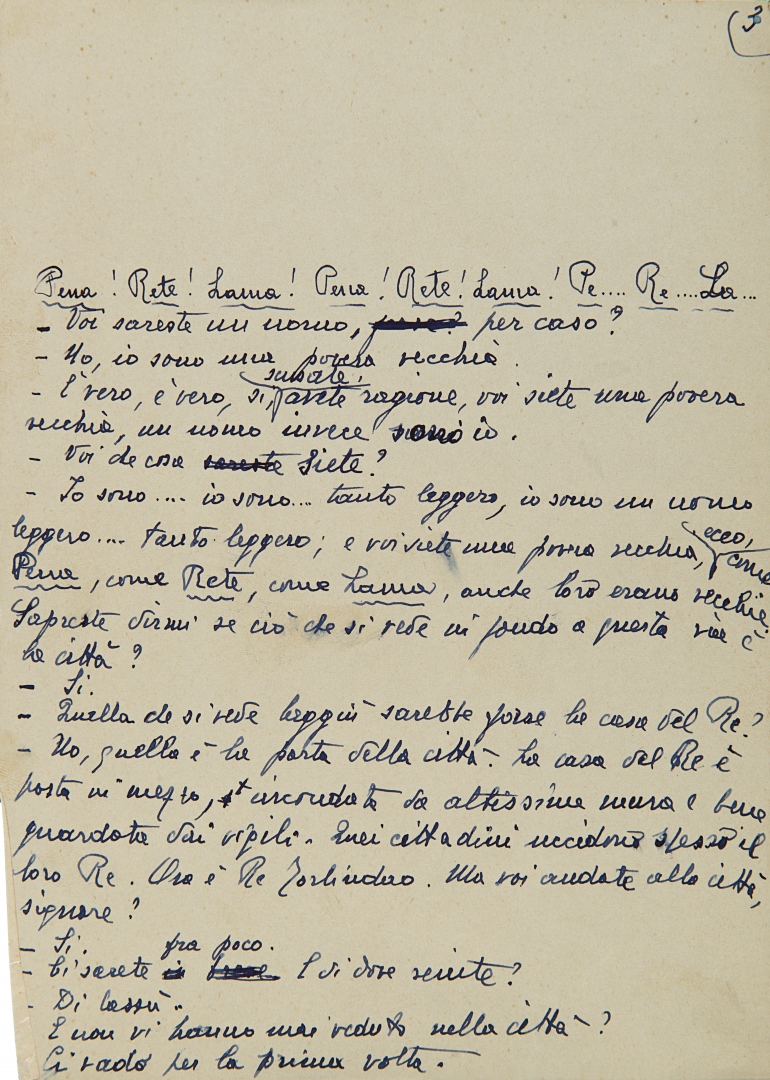 3
Pena! Rete! Lama! Pena! Rete! Lama! Pe.... Re....La...
- Voi sareste un uomo, forse? per caso?
- No, io sono una povera vecchia.
scusate!
- È vero, è vero, si, avete ragione, voi siete una povera
vecchia, un uomo invece sono io.
- Voi che cosa sareste siete?
- Io sono.... io sono... tanto leggero, io sono un uomo
leggero.... tanto leggero; e voi siete una povera vecchia, ecco, come
Pena, come Rete, come Lama, anche loro erano vecchie.
Sapreste dirmi se ciò che si vede in fondo a questa via è
la città?
- Si.
- Quella che si vede laggiù sarebbe forse la casa del Re?
- No, quella è la porta della città. La casa del Re è
posta in mezzo, circondata da altissime mura e bene
guardata dai vigili. Quei cittadini uccidono spesso il
loro Re. Ora è Re Torlindao. Ma voi andate alla città,
signore?
- Si. fra poco.
- Ci sarete in breve E di dove venite?
- Di lassù.
E non vi hanno mai veduto nella città?
Ci vado per la prima volta.